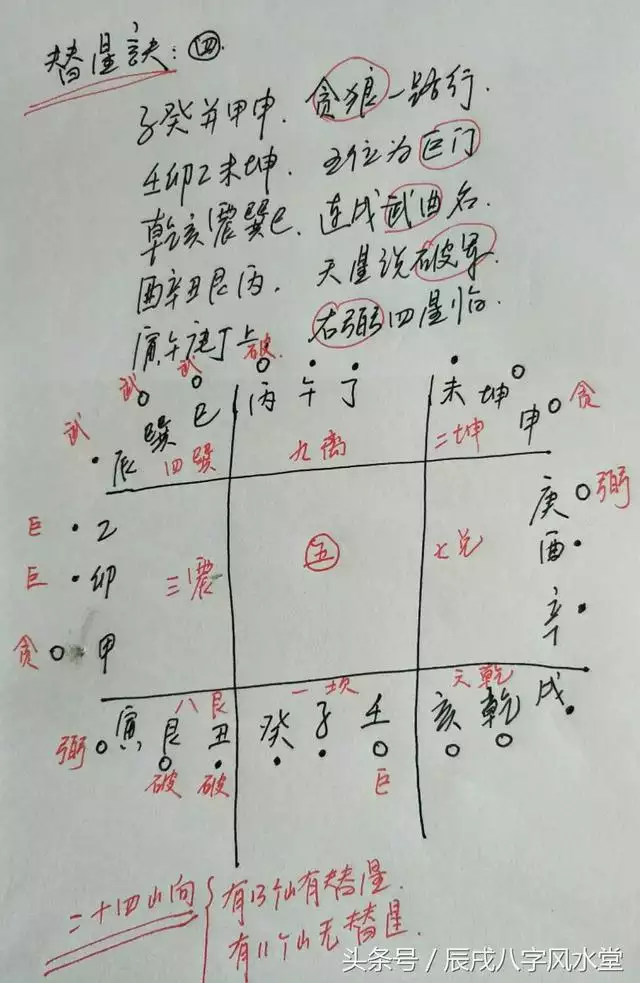 替星诀:㊃
子癸并甲申. 贪狼一路行.
壬卯乙未坤. 五位为巨门
乾亥震巽巳. 连戌武曲名.
酉辛丑艮丙. 天星说破军.
寅午庚丁上 右弼四星临.
武 武 武 破
辰 巽 巳 丙 午 丁 未 坤 申 贪
四巽 九离 二坤
巨 乙 庚 弼
巨 卯 三震 五 七兑 酉
贪 甲 辛
八艮 一坎 六乾
弼 寅 艮 丑 癸 子 壬 亥 乾 戌
破 破 巨
二十四山向
有13个山有替星.
有11个山无替星.
头条号 / 辰戌八字风水堂